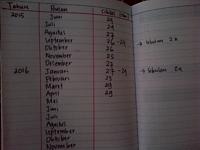 Tahun Bulan
2015 Juni 29
Juli 29
Agustus 27
September 26 - 29 → sebulan 2x
Oktober 26
November 25
Desember 23
2016 Januari 27 - 29 → sebulan 2x
Februari 23
Maret 29
April 29
Mei
Juni
Juli
Agustus
September
Oktober
November